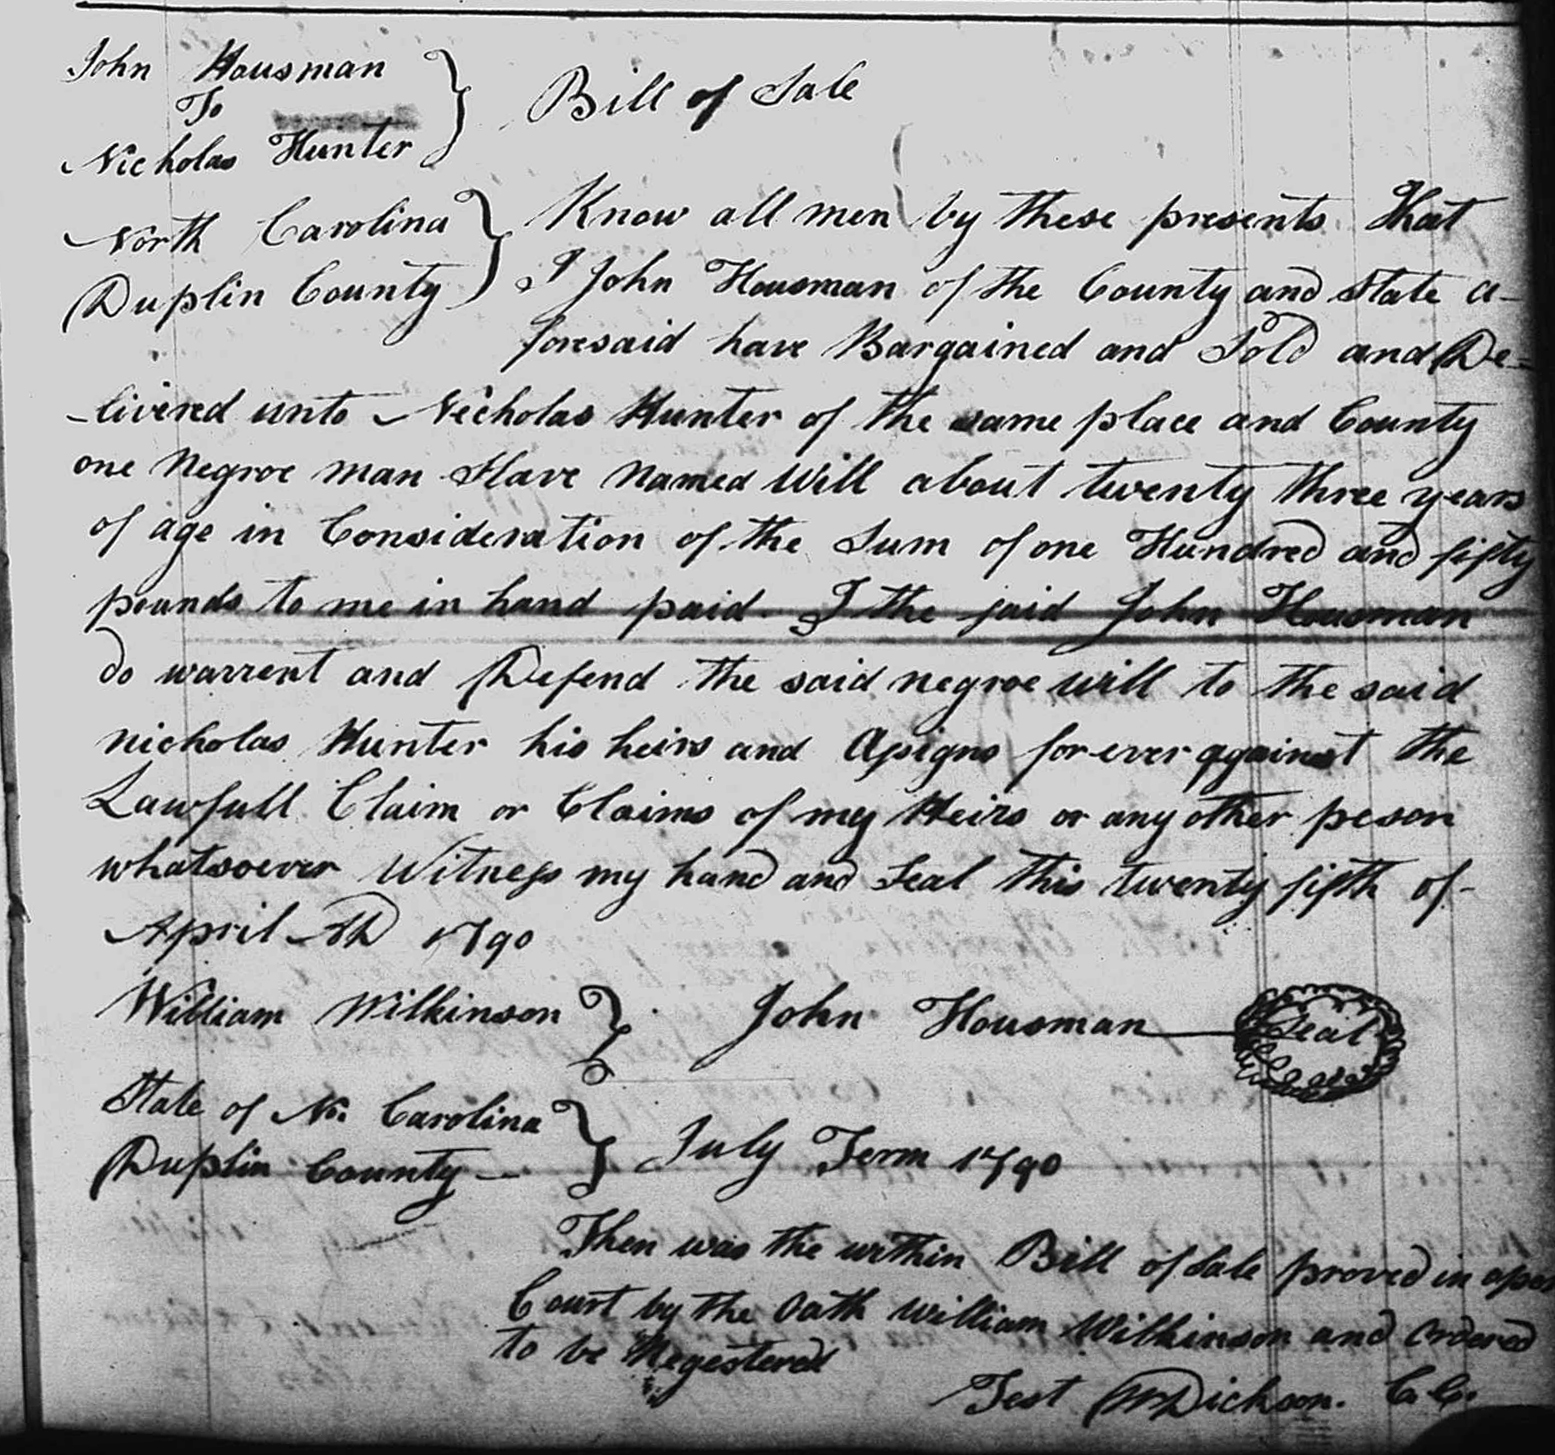 John Housman
To
Nicholas Hunter
Bill of Sale
North Carolina
Duplin County
Know all men by these presents That
I John Housman of the County and State a-
foresaid have Bargained and Sold and De-
-livered unto Nicholas Hunter of the same place and County
one Negroe man Slave Named Will about twenty three years
of age in Consideration of the Sum of one Hundred and fifty
pounds to me in hand paid. I the said John Housman
do warrent and Defend the said negroe will to the said
nicholas Hunter his heirs and Assigns for-ever against the
Lawfull Claim or Claims of my Heirs or any other peson
whatsoever Witness my hand and Seal this twenty fifth of-
April 1790
William Wilkinson
John Housman
Seal
State of No. Carolina
Duplin County
July Term 1790
Then was the within Bill of Sale proved in open
Court by the Oath William Wilkinson and Ordered
to be Regestered
Test W Dickson. C.C.